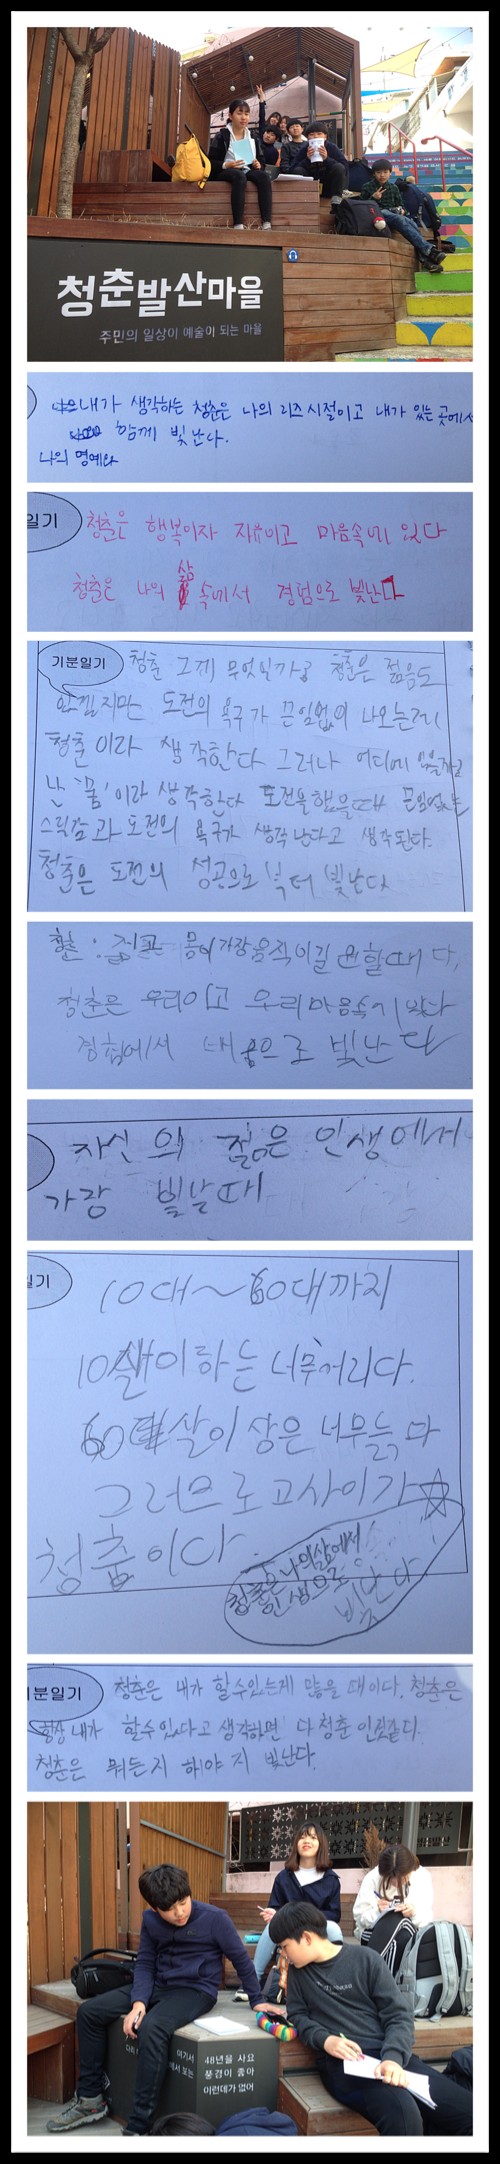 청춘발산마을
주민의 일상이 예술이 되는 마을
내가 생각하는 청춘은 나의 리즈시절이고 내가 있는 곳에서
나의 명예와 함께 빛난다.
일기
청춘은 행복이자 자유이고 마음속에 있다
청춘은 나의 삶 속에서 경험으로 빛난다
기분일기
청춘 그게 무엇일까? 청춘은 젊음도
있겠지만 도전의 욕구가 끈임없의 나오는게
청춘이라 생각한다 그러나 어디에 있을까?
난 '몸'이라 생각한다 도전을했을때 끈임없는
스릴감과 도전의 욕구가 생각난다고 생각된다.
청춘은 도전의 성공으로 부터 빛난다
청춘: 몸이 가장 움직이길 원할때 다.
청춘은 우리이고 우리마음속에 있다
경험에서 배움으로 빛난다
자신의 젊은 인생에서
가장 빛날때
일기
10대~60대까지
10살이하는 너무어리다.
60살이상은 너무늙다
그러므로 고사이가
청춘이다.
청춘은 나의삶에서
인생으로
빛난다
기분일기
청춘은 내가 할수있는게 많을 때이다. 청춘은
항상 내가 할수있다고 생각하면 다 청춘 인것같다.
청춘은 뭐든지 해야지 빛난다.
여기서 48년을 사요
풍경이 좋아
이런데가 없어